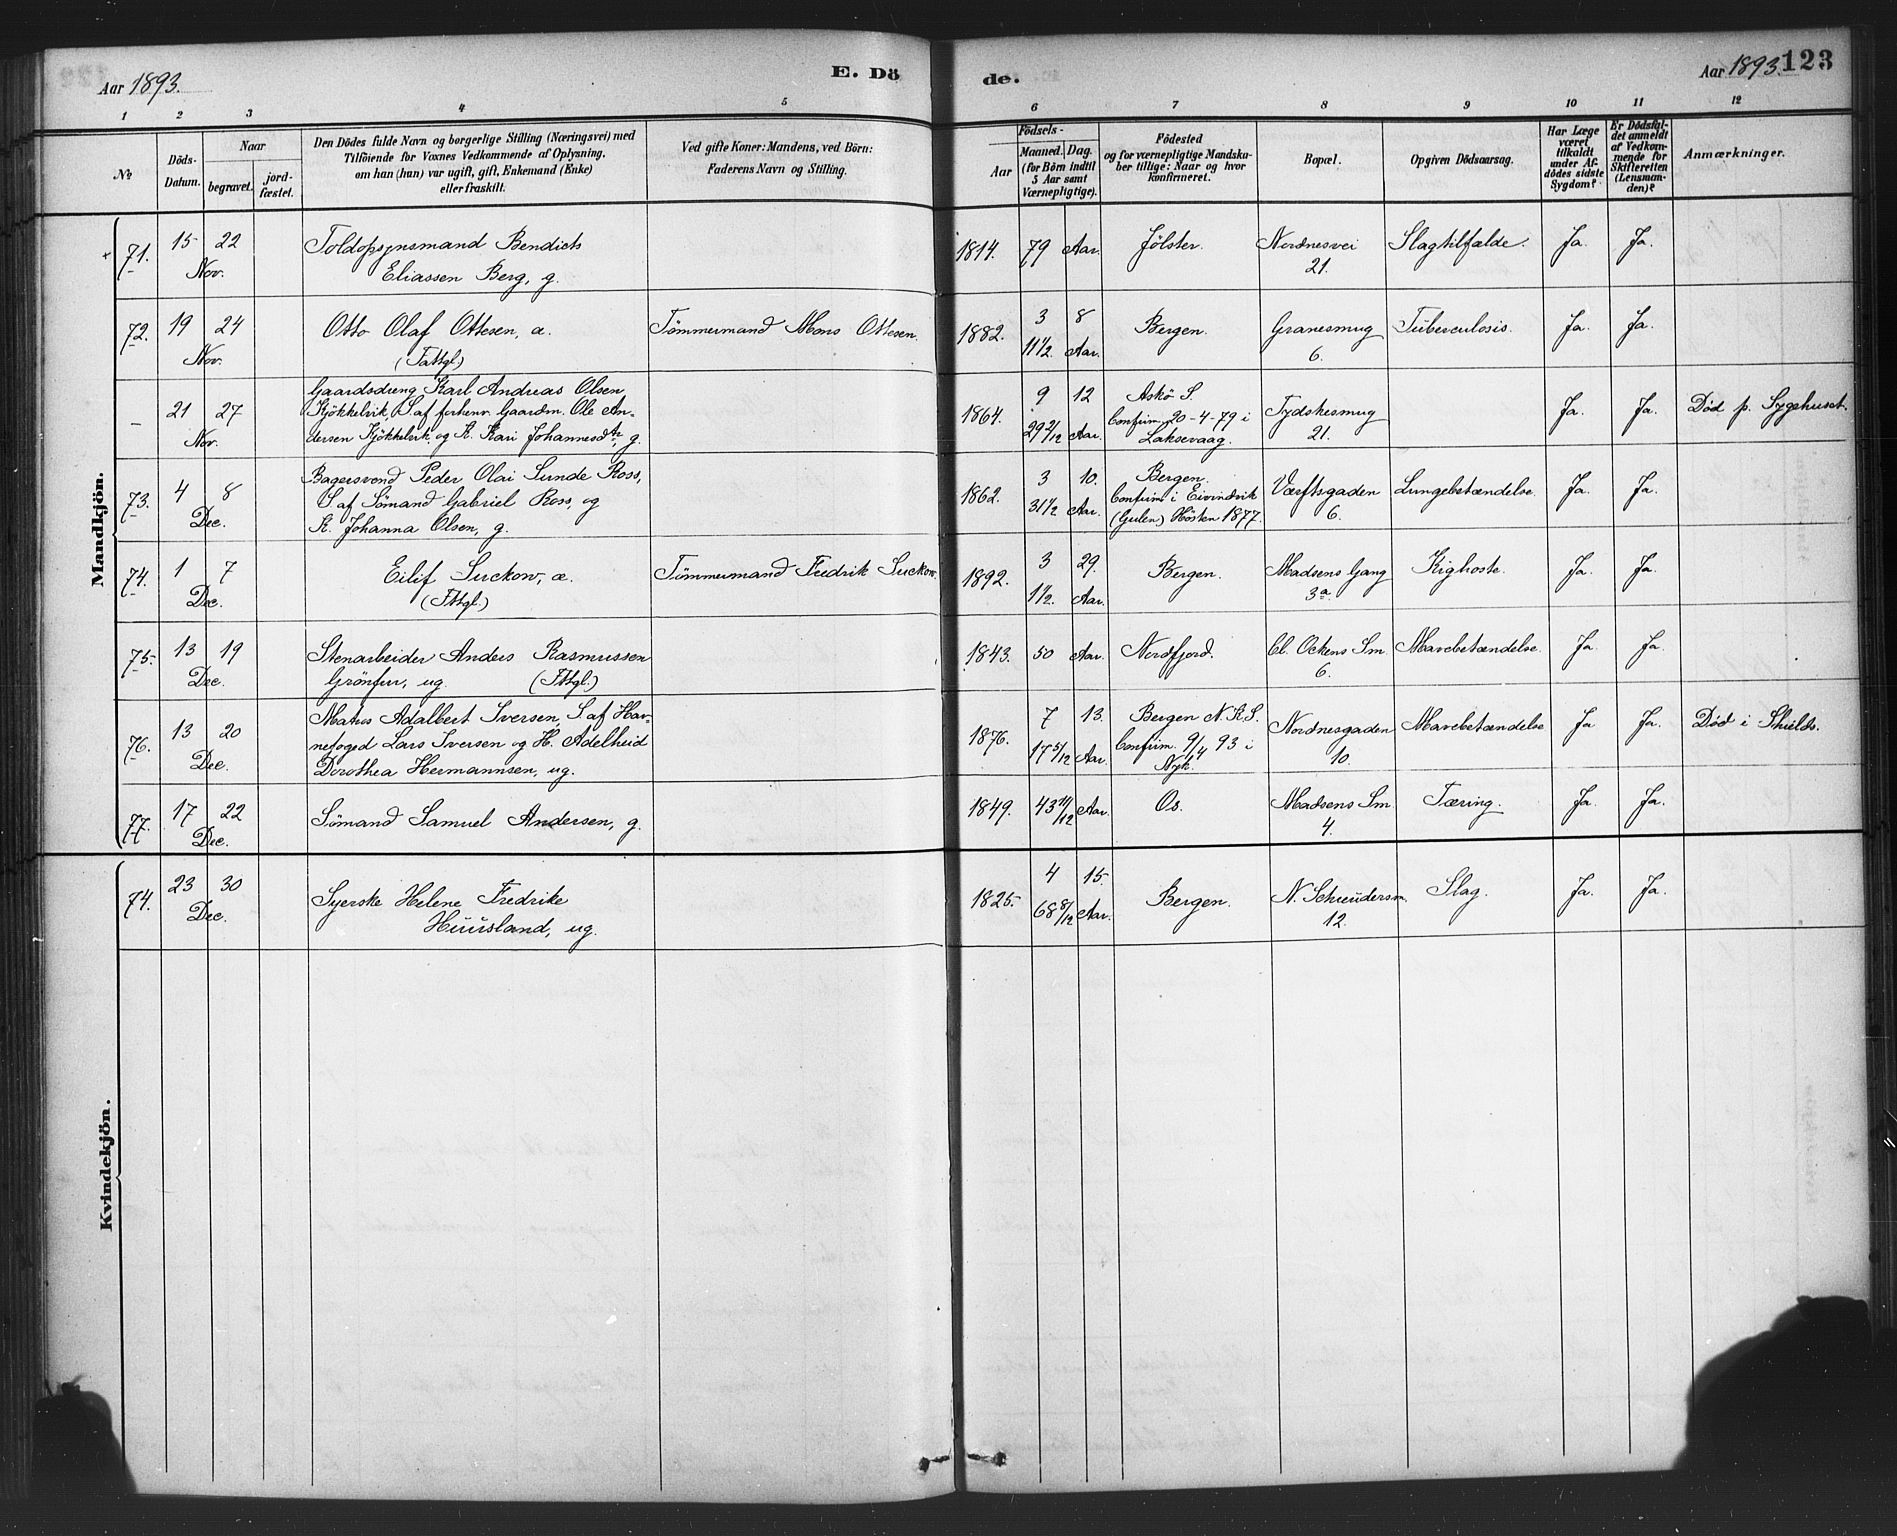 Aar 1893.
E. Dö
de.
Aar 1893.
123
1 2 3 4 5
6 7 8 9 10 11 12
No
Döds-
Datum.
Naar
begravet.
jord-
fæstet.
Den Dödes fulde Navn og borgerlige Stilling (Næringsvei) med
Tilföiende for Voxnes Vedkommende af Oplysning,
om han (hun) var ugift, gift, Enkemand (Enke)
eller fraskilt.
Ved gifte Koner: Mandens, ved Börn:
Faderens Navn og Stilling.
Födsels-
Aar
Maaned. Dag.
(for Börn indtil
5 Aar samt
Værnepligtige).
Födested
og for værnepligtige Mandska-
ber tillige: Naar og hvor
konfirmeret.
Bopæl.
Opgiven Dödsaarsag.
Har Læge
været
tilkaldt
under Af-
dödes sidste
Sygdom?
Er Dödsfal-
det anmeldt
af Vedkom-
mende for
Skifteretten
(Lensman-
den)?
Anmærkninger.
Mandkjön.
71. 15 22 Toldopsynsmand Bendicts 1814. 79 Aar. Jølster. Nordnesvei Slagtilfælde. Ja. Ja.
Nov. Eliassen Berg, g. 21.
72. 19 24 Otto Olaf Ottesen, æ. Tømmermand Mons Ottesen. 1882. 3 8 Bergen. Granesmug Tuberculosis. Ja. Ja.
Nov. (Fattgl.) 11 1/2 Aar. 6.
Gaardsdreng Karl Andreas Olsen
– 21 27 Kjøkkelvik, S. af forhenv. Gaardm. Ole An- 1864. 9 12 Askø S. Tydskesmug Ja. Ja. Død p. Sygehuset.
Nov. dersen Kjøkkelvik og K. Kari Johannesdtr, g. 29 2/12 Aar. Confirm. 20-4-79 i 21.
Laksevaag.
73. 4 8 Bagersvend Peder Olai Sunde Ross, 1862. 3 10. Bergen. Værftsgaden Lungebetændelse. Ja. Ja.
S. af Sømand Gabriel Ross, og 31 1/2 Aar. Confirm i Eivindvik 6.
Dec. K. Johanna Olsen, g. (Gulen) Høsten 1877.
74. 1 7 Eilif Suckow, æ. Tømmermand Fredrik Suckow. 1892. 3 29. Bergen. Madsens Gang Kighoste. Ja. Ja.
Dec. (Fttgl.) 1 1/2. Aar. 3a.
75. 13 19 Stenarbeider Anders Rasmussen 1843. 50 Aar. Nordfjord. Cl. Ockens Sm. Mavebetændelse. Ja. Ja.
Dec. ug. (Fttgl.) 6.
76. 13 20 Adalbert Iversen, S. af Hav- 1876. 7 13. Bergen N.K.S. Nordnesgaden Mavebetændelse Ja Ja. Død i Shields.
nefoged Lars Iversen og H. Adelheid 17 5/12 Aar. Confirm. 9/4 93 i 10.
Dec. Dorothea Hermannsen, ug. Nyk.
77. 17 22 Sømand Samuel Andersen, g. 1849. 43 11/12 Aar. Os. Madsens Sm. Tæring. Ja. Ja.
Dec. 4.
Kvindekjön.
74. 23 30 Syerske Helene Fredrike 1825. 4 15. Bergen. N. Schreudersm. Slag. Ja. Ja.
Dec. Huusland, ug. 68 8/12 Aar. 12.